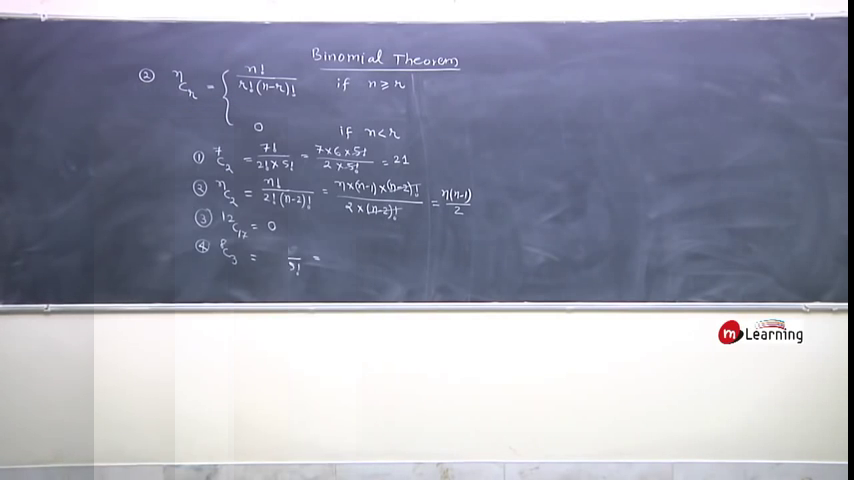 Binomial Theorem
② ⁿCᵣ = { n! / r!(n-r)! if n ≥ r
0 if n < r
① ⁷C₂ = 7! / 2! × 5! = 7 × 6 × 5! / 2 × 5! = 21
② ⁿC₂ = n! / 2! (n-2)! = n × (n-1) × (n-2)! / 2 × (n-2)! = n(n-1) / 2
③ ¹²C₁₇ = 0
④ ⁸C₃ = / 5! =
m Learning